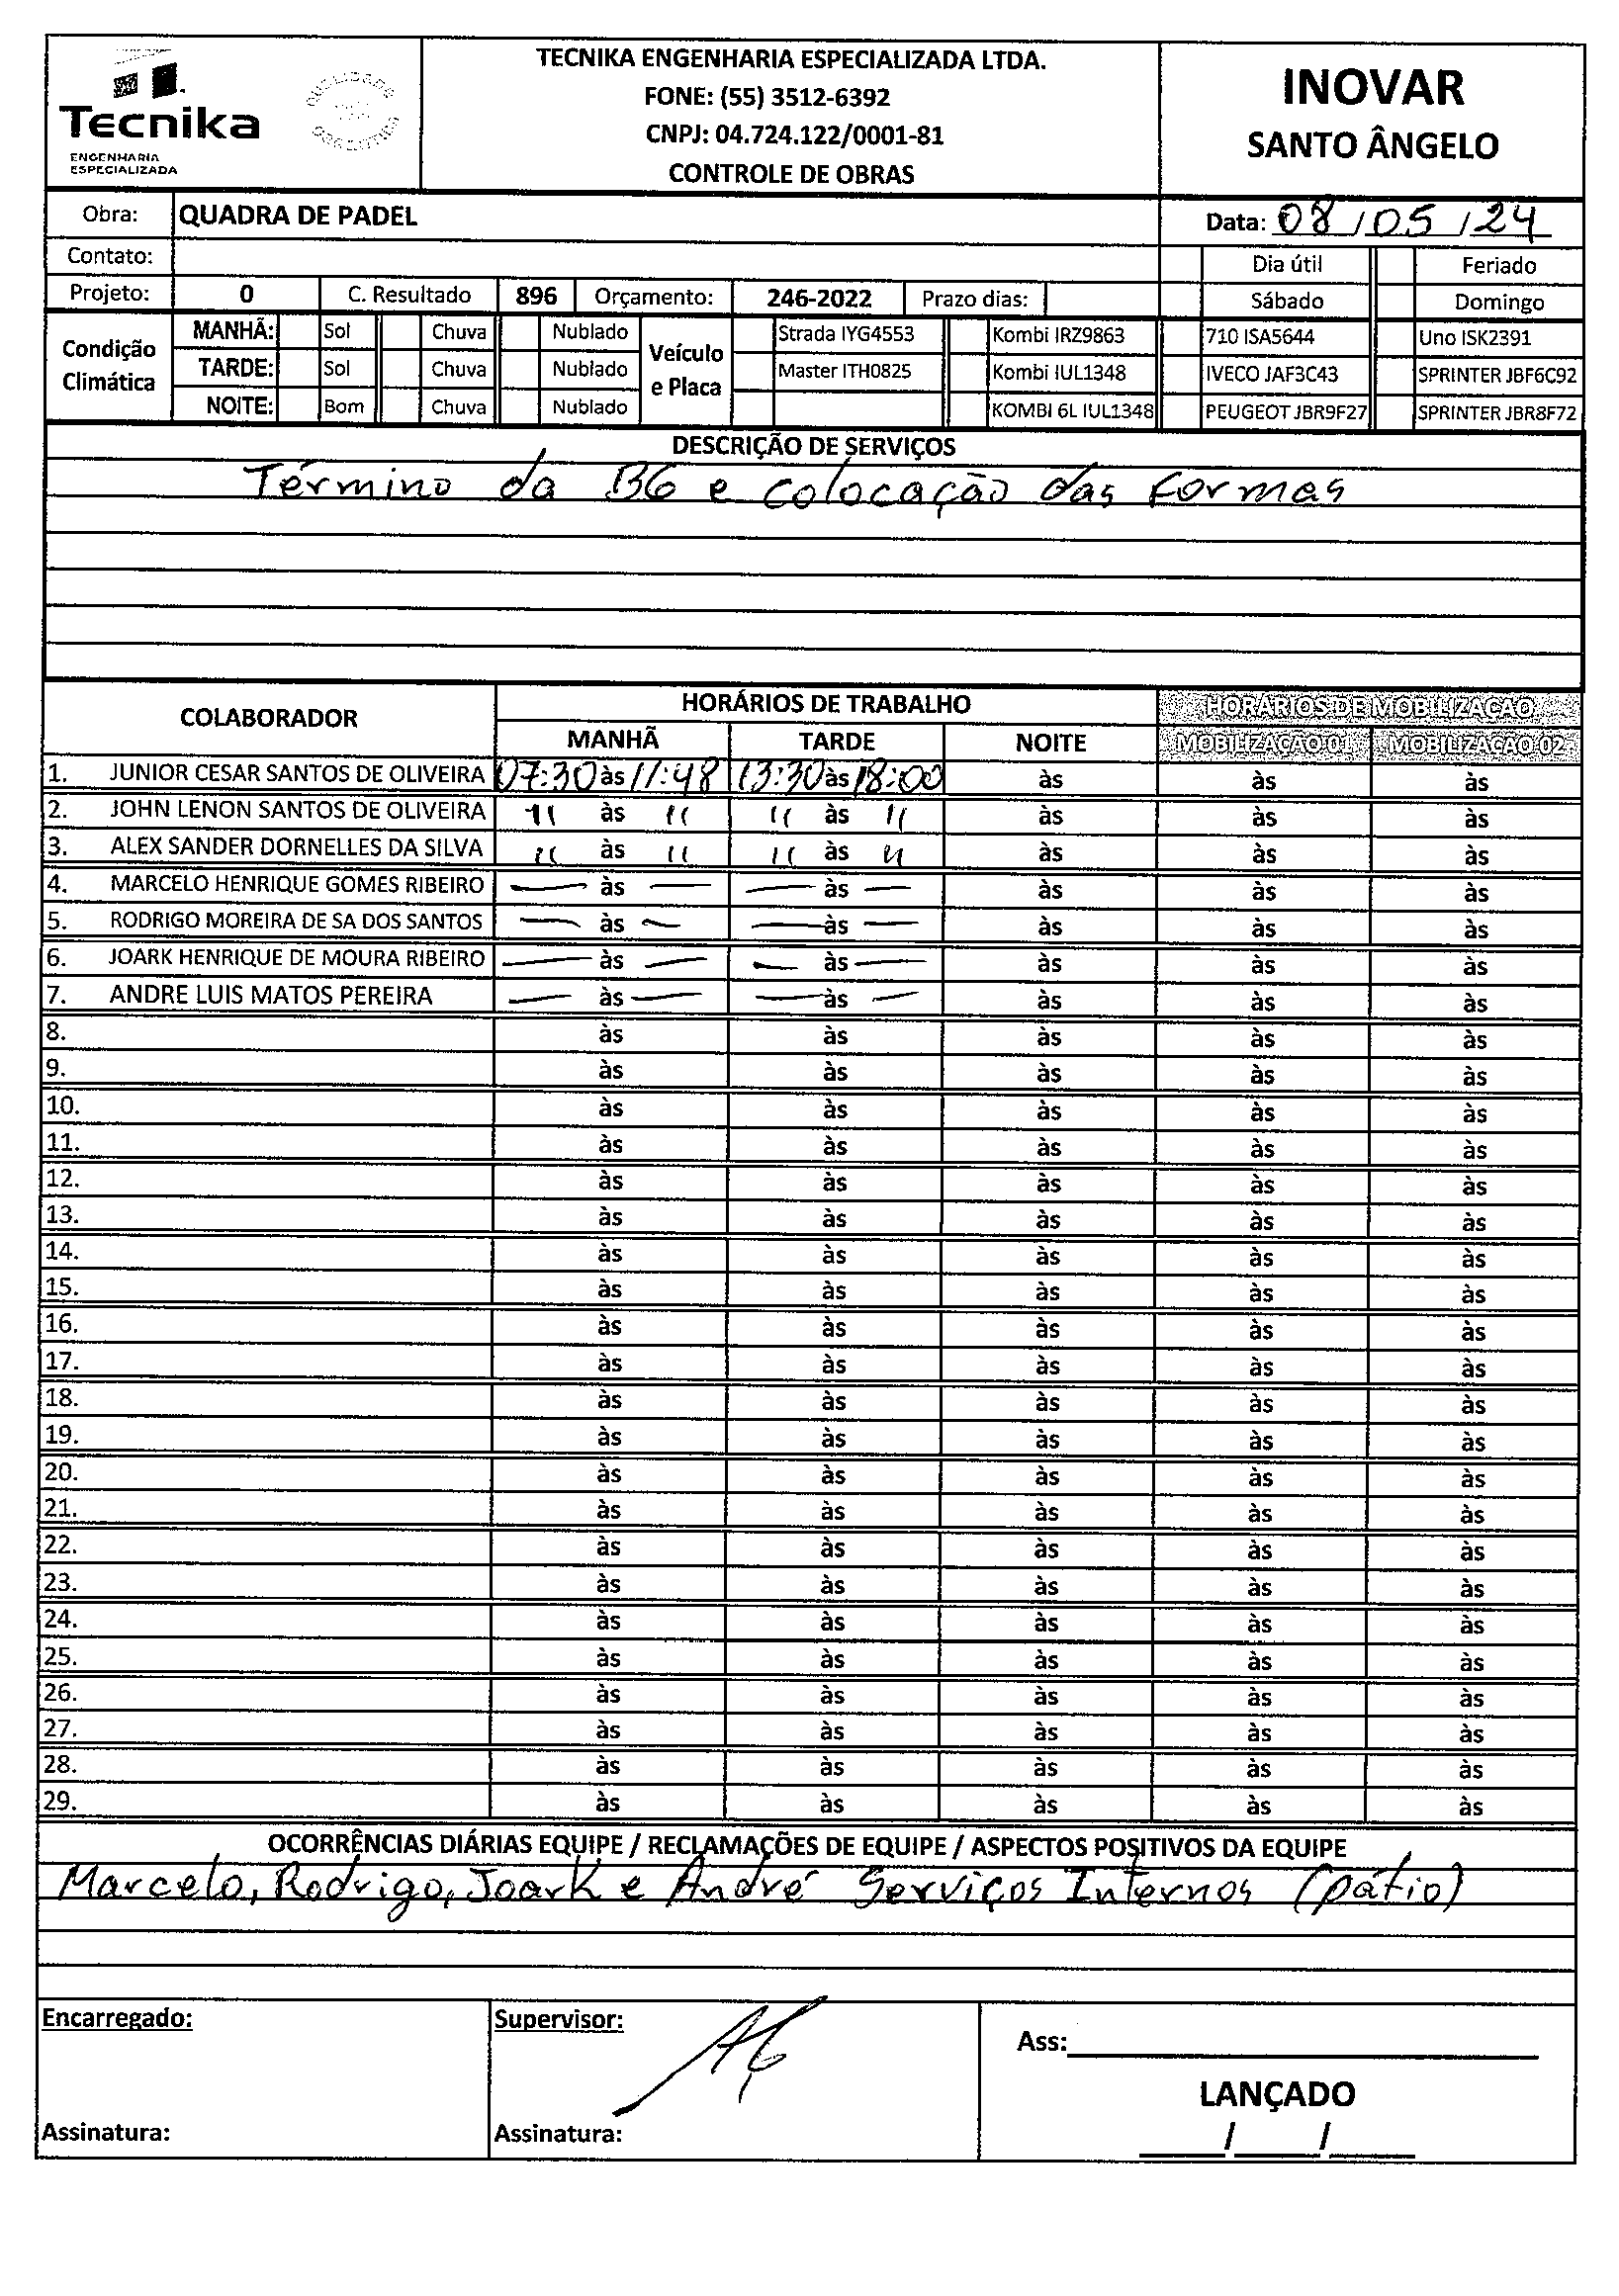 Tecnika
ENGENHARIA
ESPECIALIZADA
QUALIDADE
TECNIKA ENGENHARIA ESPECIALIZADA LTDA.
FONE: (55) 3512-6392
CNPJ: 04.724.122/0001-81
CONTROLE DE OBRAS
INOVAR
SANTO ÂNGELO
Obra: QUADRA DE PADEL Data: 08/05/24
Contato: Dia útil Feriado
Projeto: 0 C. Resultado 896 Orçamento: 246-2022 Prazo dias: Sábado Domingo
Condição Climática
MANHÃ: Sol Chuva Nublado
TARDE: Sol Chuva Nublado
NOITE: Bom Chuva Nublado
Veículo e Placa
Strada IYG4553 Kombi IRZ9863 710 ISA5644 Uno ISK2391
Master ITH0825 Kombi IUL1348 IVECO JAF3C43 SPRINTER JBF6C92
KOMBI 6L IUL1348 PEUGEOT JBR9F27 SPRINTER JBR8F72
DESCRIÇÃO DE SERVIÇOS
Término da BG e colocação das formas
COLABORADOR HORÁRIOS DE TRABALHO HORÁRIOS DE MOBILIZAÇÃO
MANHÃ TARDE NOITE MOBILIZAÇÃO 01 MOBILIZAÇÃO 02
1. JUNIOR CESAR SANTOS DE OLIVEIRA 07:30 às 11:48 13:30 às 18:00 às às às
2. JOHN LENON SANTOS DE OLIVEIRA " às " " às " às às às
3. ALEX SANDER DORNELLES DA SILVA " às " " às " às às às
4. MARCELO HENRIQUE GOMES RIBEIRO — às — — às — às às às
5. RODRIGO MOREIRA DE SA DOS SANTOS — às — — às — às às às
6. JOARK HENRIQUE DE MOURA RIBEIRO — às — — às — às às às
7. ANDRE LUIS MATOS PEREIRA — às — — às — às às às
8. às às às às às
9. às às às às às
10. às às às às às
11. às às às às às
12. às às às às às
13. às às às às às
14. às às às às às
15. às às às às às
16. às às às às às
17. às às às às às
18. às às às às às
19. às às às às às
20. às às às às às
21. às às às às às
22. às às às às às
23. às às às às às
24. às às às às às
25. às às às às às
26. às às às às às
27. às às às às às
28. às às às às às
29. às às às às às
OCORRÊNCIAS DIÁRIAS EQUIPE / RECLAMAÇÕES DE EQUIPE / ASPECTOS POSITIVOS DA EQUIPE
Marcelo, Rodrigo, Joark e André Serviços Internos (pátio)
Encarregado: Supervisor:
Ass:
LANÇADO
Assinatura: Assinatura: / /